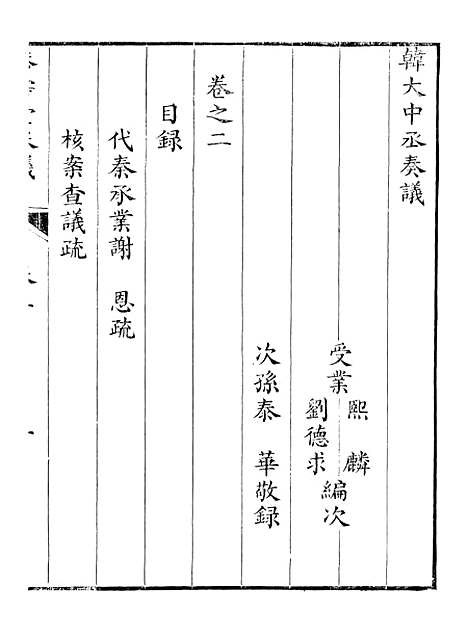 韓大中丞奏議
受業
熙麟
劉德求
編次
次孫泰華敬録
卷之二
目録
代秦承業謝恩疏
核案查議疏